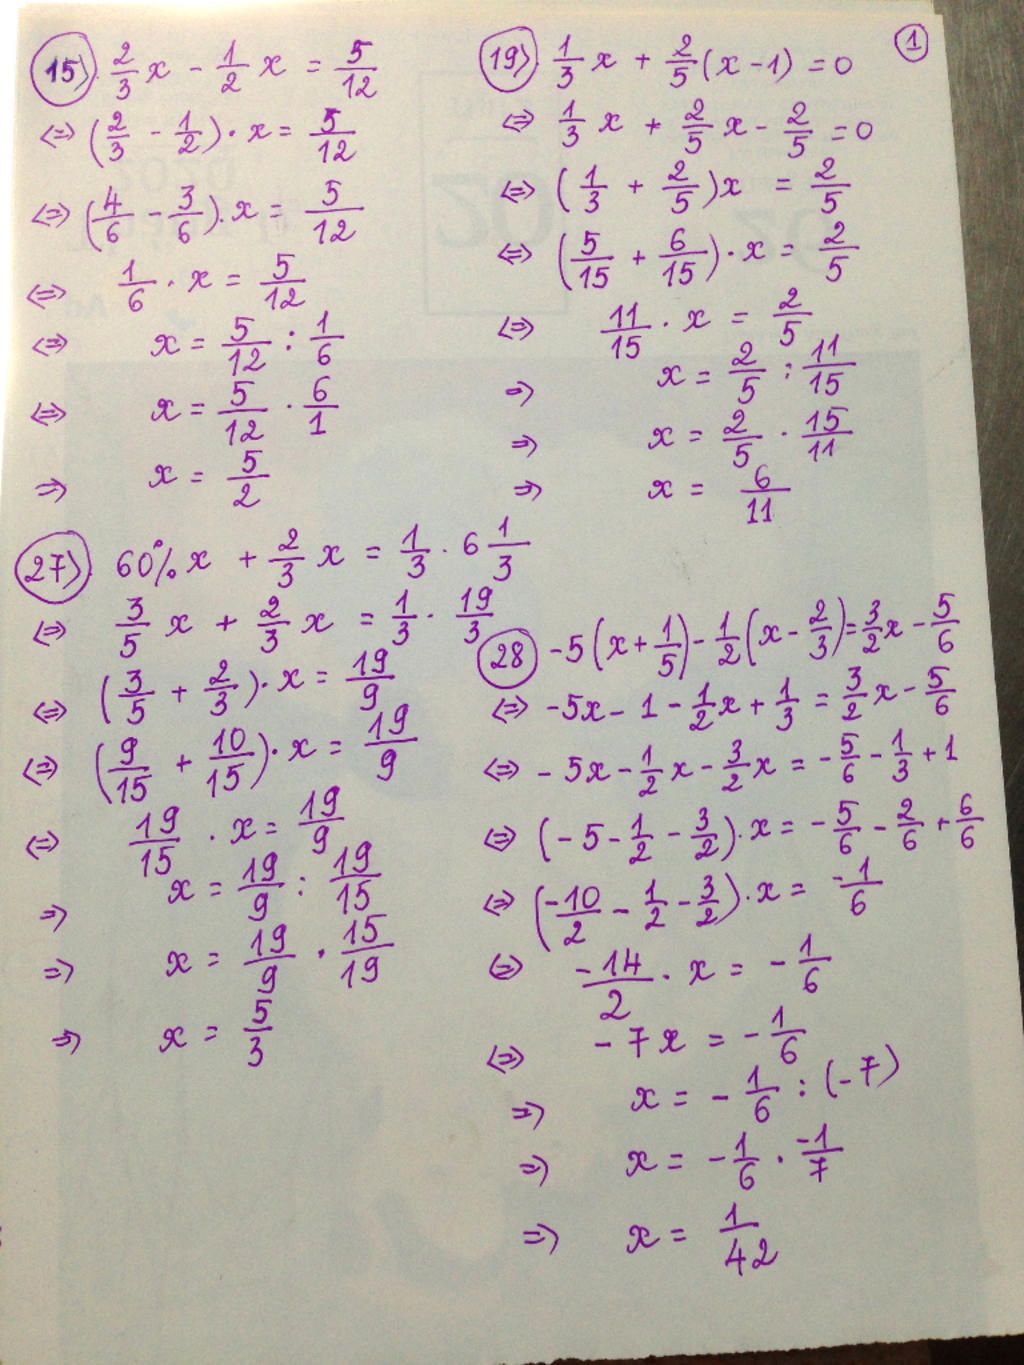 15) 2/3 x - 1/2 x = 5/12
⇔ (2/3 - 1/2) · x = 5/12
⇔ (4/6 - 3/6) · x = 5/12
⇔ 1/6 · x = 5/12
⇔ x = 5/12 : 1/6
⇔ x = 5/12 · 6/1
⇒ x = 5/2
1
19) 1/3 x + 2/5 (x - 1) = 0
⇔ 1/3 x + 2/5 x - 2/5 = 0
⇔ (1/3 + 2/5) x = 2/5
⇔ (5/15 + 6/15) · x = 2/5
⇔ 11/15 · x = 2/5
⇒ x = 2/5 : 11/15
⇒ x = 2/5 · 15/11
⇒ x = 6/11
27) 60% x + 2/3 x = 1/3 · 6 1/3
⇔ 3/5 x + 2/3 x = 1/3 · 19/3
⇔ (3/5 + 2/3) · x = 19/9
⇔ (9/15 + 10/15) · x = 19/9
⇔ 19/15 · x = 19/9
⇒ x = 19/9 : 19/15
⇒ x = 19/9 · 15/19
⇒ x = 5/3
28 -5 (x + 1/5) - 1/2 (x - 2/3) = 3/2 x - 5/6
⇔ -5x - 1 - 1/2 x + 1/3 = 3/2 x - 5/6
⇔ -5x - 1/2 x - 3/2 x = -5/6 - 1/3 + 1
⇔ (-5 - 1/2 - 3/2) · x = -5/6 - 2/6 + 6/6
⇔ (-10/2 - 1/2 - 3/2) · x = -1/6
⇔ -14/2 · x = -1/6
⇔ -7x = -1/6
⇒ x = -1/6 : (-7)
⇒ x = -1/6 · -1/7
⇒ x = 1/42